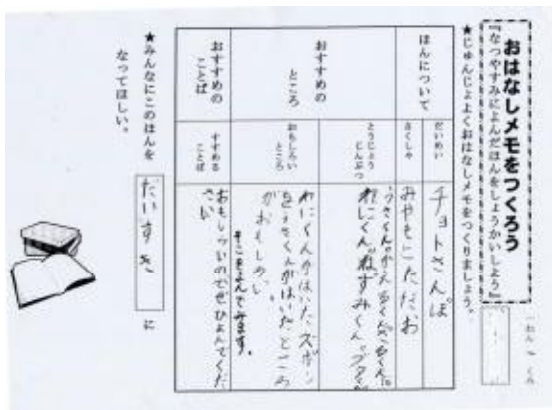 おはなしメモをつくろう
『なつやすみによんだほんをしょうかいしよう』
★じゅんじょよくおはなしメモをつくりましょう。
ほんについて
だいめい
チョトさんぽ
さくしゃ
みやもとただお
おすすめの
ところ
とうじょう
じんぶつ
うさくん。かえるくん。
わにくん。ねずみくん。ブタ
おもしろい
ところ
わにくんがはいたズボン
がおもしろい
そこをよんでみます。
おすすめの
ことば
すすめる
ことば
おもしろいのでぜひよんでくだ
さい
★みんなにこのほんを
だいすき
に
なってほしい。